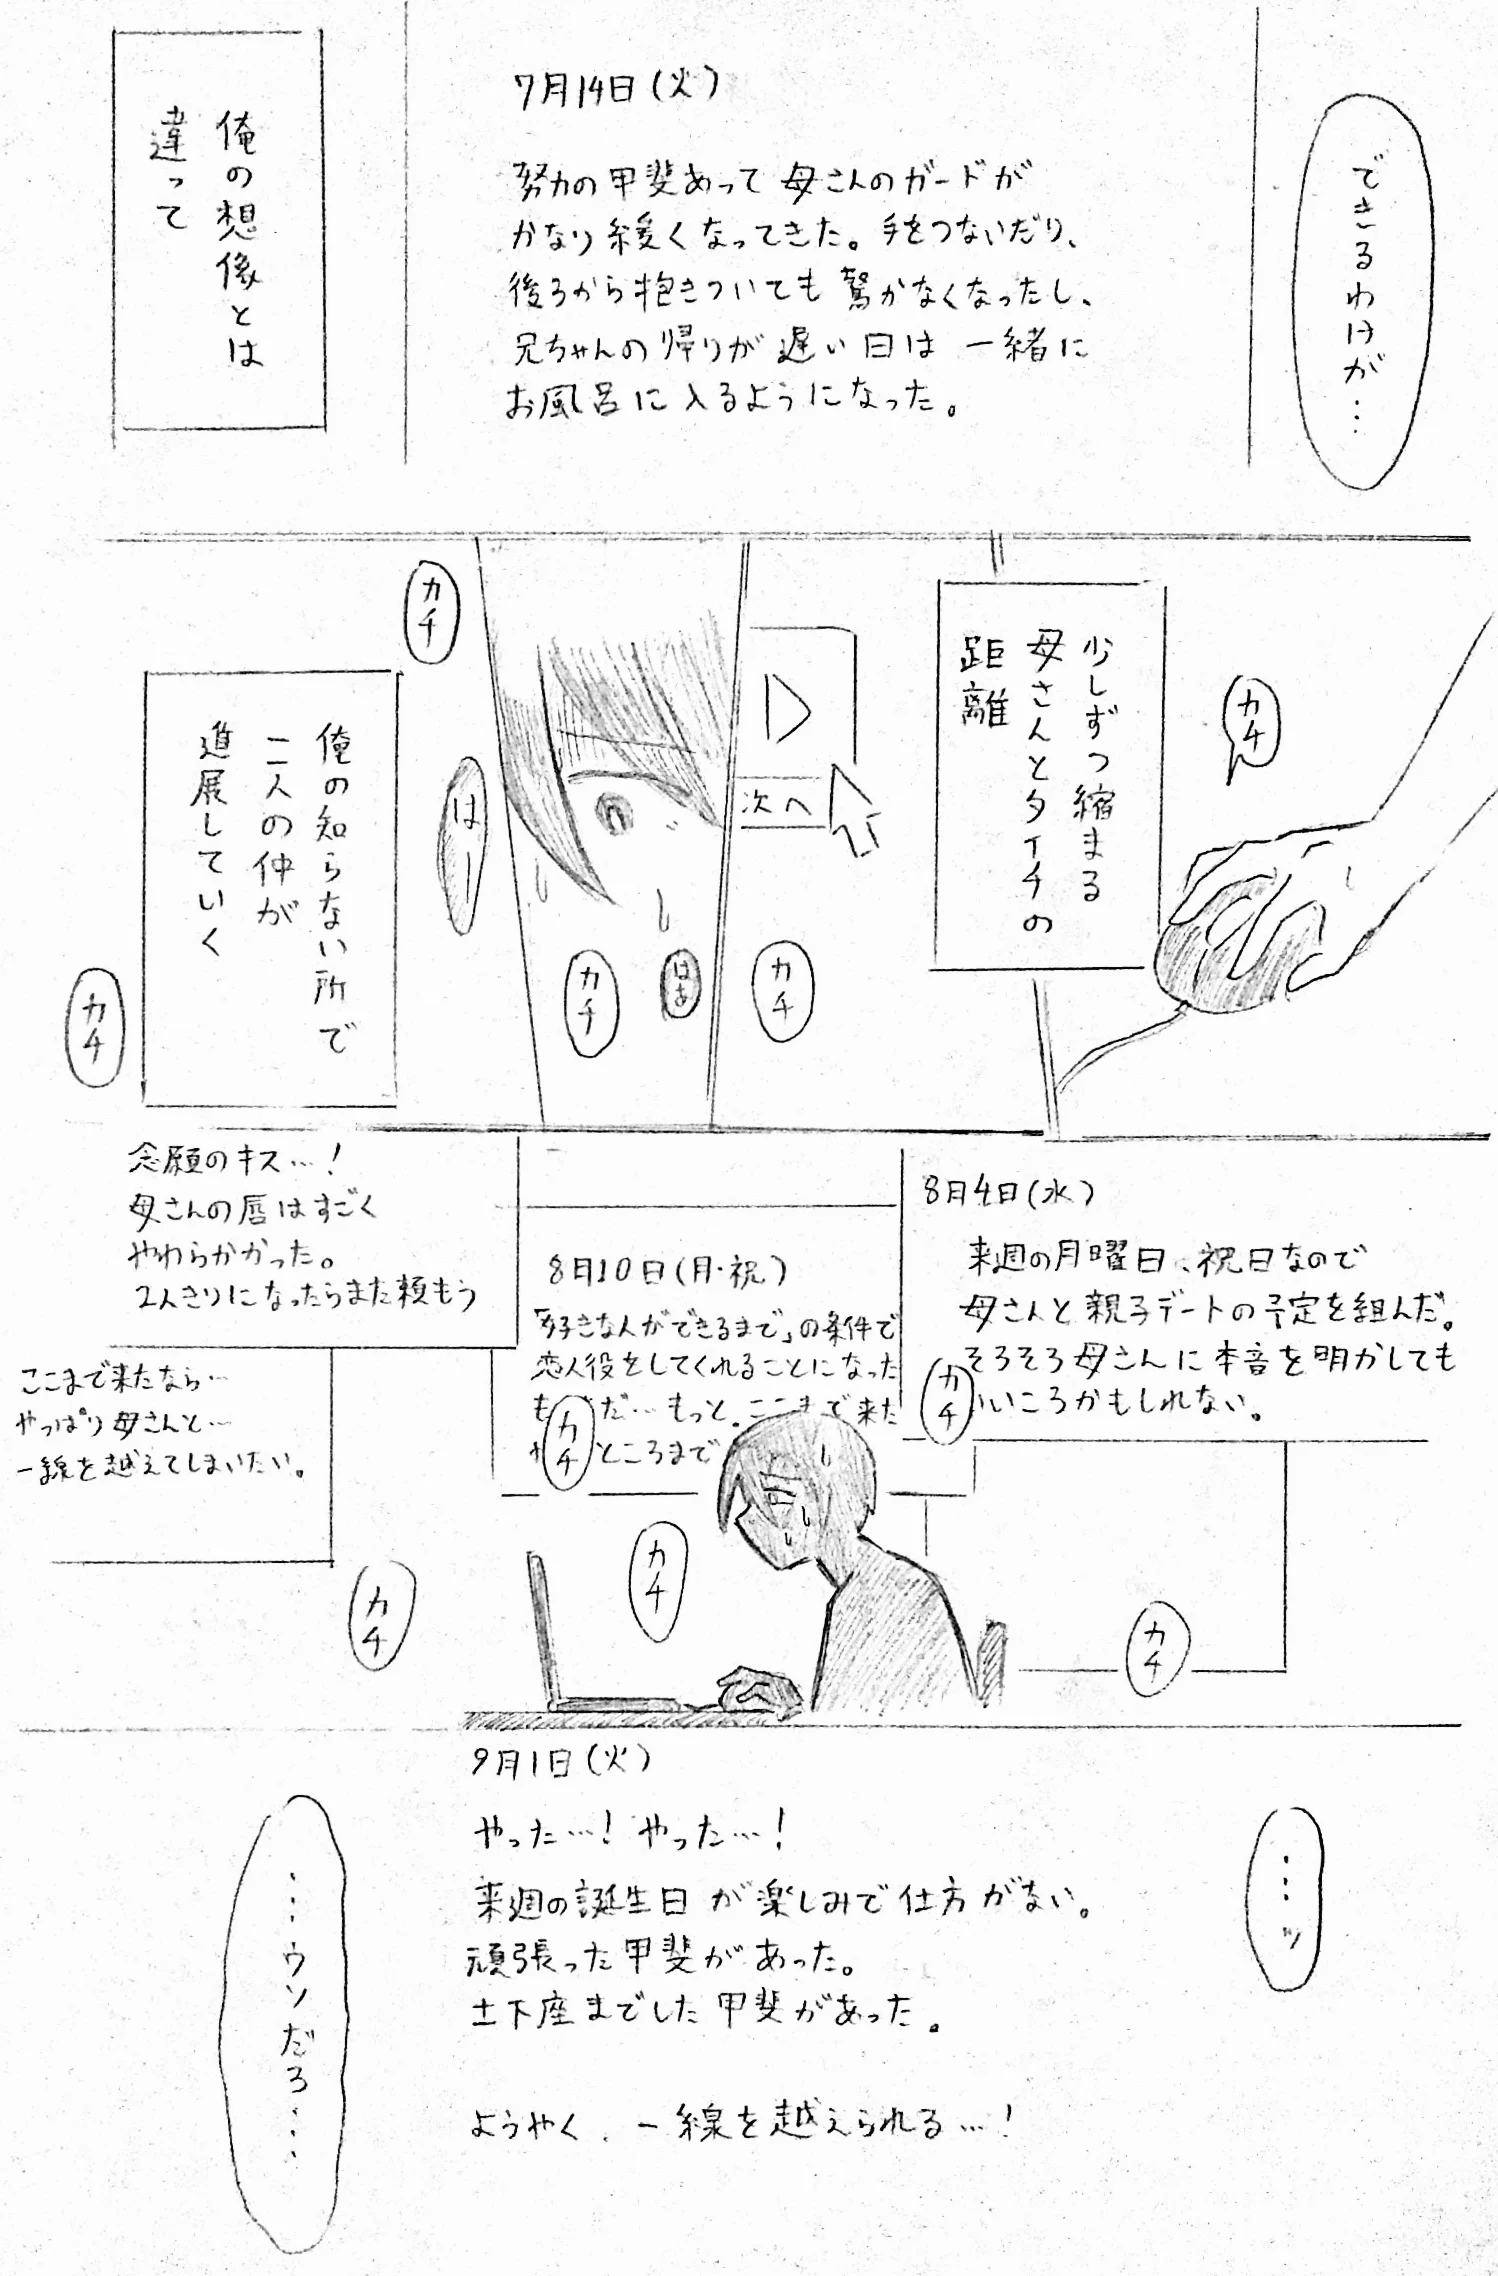 できるわけが…
7月14日(火)
努力の甲斐あって母さんのガードが
かなり緩くなってきた。手をつないだり、
後ろから抱きついても驚かなくなったし、
兄ちゃんの帰りが遅い日は一緒に
お風呂に入るようになった。
俺の想像とは
違って
カチ
少しずつ縮まる
母さんとタイチの
距離
次へ
カチ
はぁ
カチ
はー
カチ
俺の知らない所で
二人の仲が
進展していく
カチ
8月4日(水)
来週の月曜日、祝日なので
母さんと親子デートの予定を組んだ。
そろそろ母さんに本音を明かしても
いいころかもしれない。
カチ
8月10日(月・祝)
「好きな人ができるまで」の条件で
恋人役をしてくれることになった
も だ…もっと。ここまで来た
ところまで
カチ
念願のキス…!
母さんの唇はすごく
やわらかかった。
2人きりになったらまた頼もう
ここまで来たなら…
やっぱり母さんと…
一線を越えてしまいたい。
カチ
カチ
カチ
…ッ
9月1日(火)
やった…!やった…!
来週の誕生日が楽しみで仕方がない。
頑張った甲斐があった。
土下座までした甲斐があった。
ようやく、一線を越えられる…!
…ウソだろ…